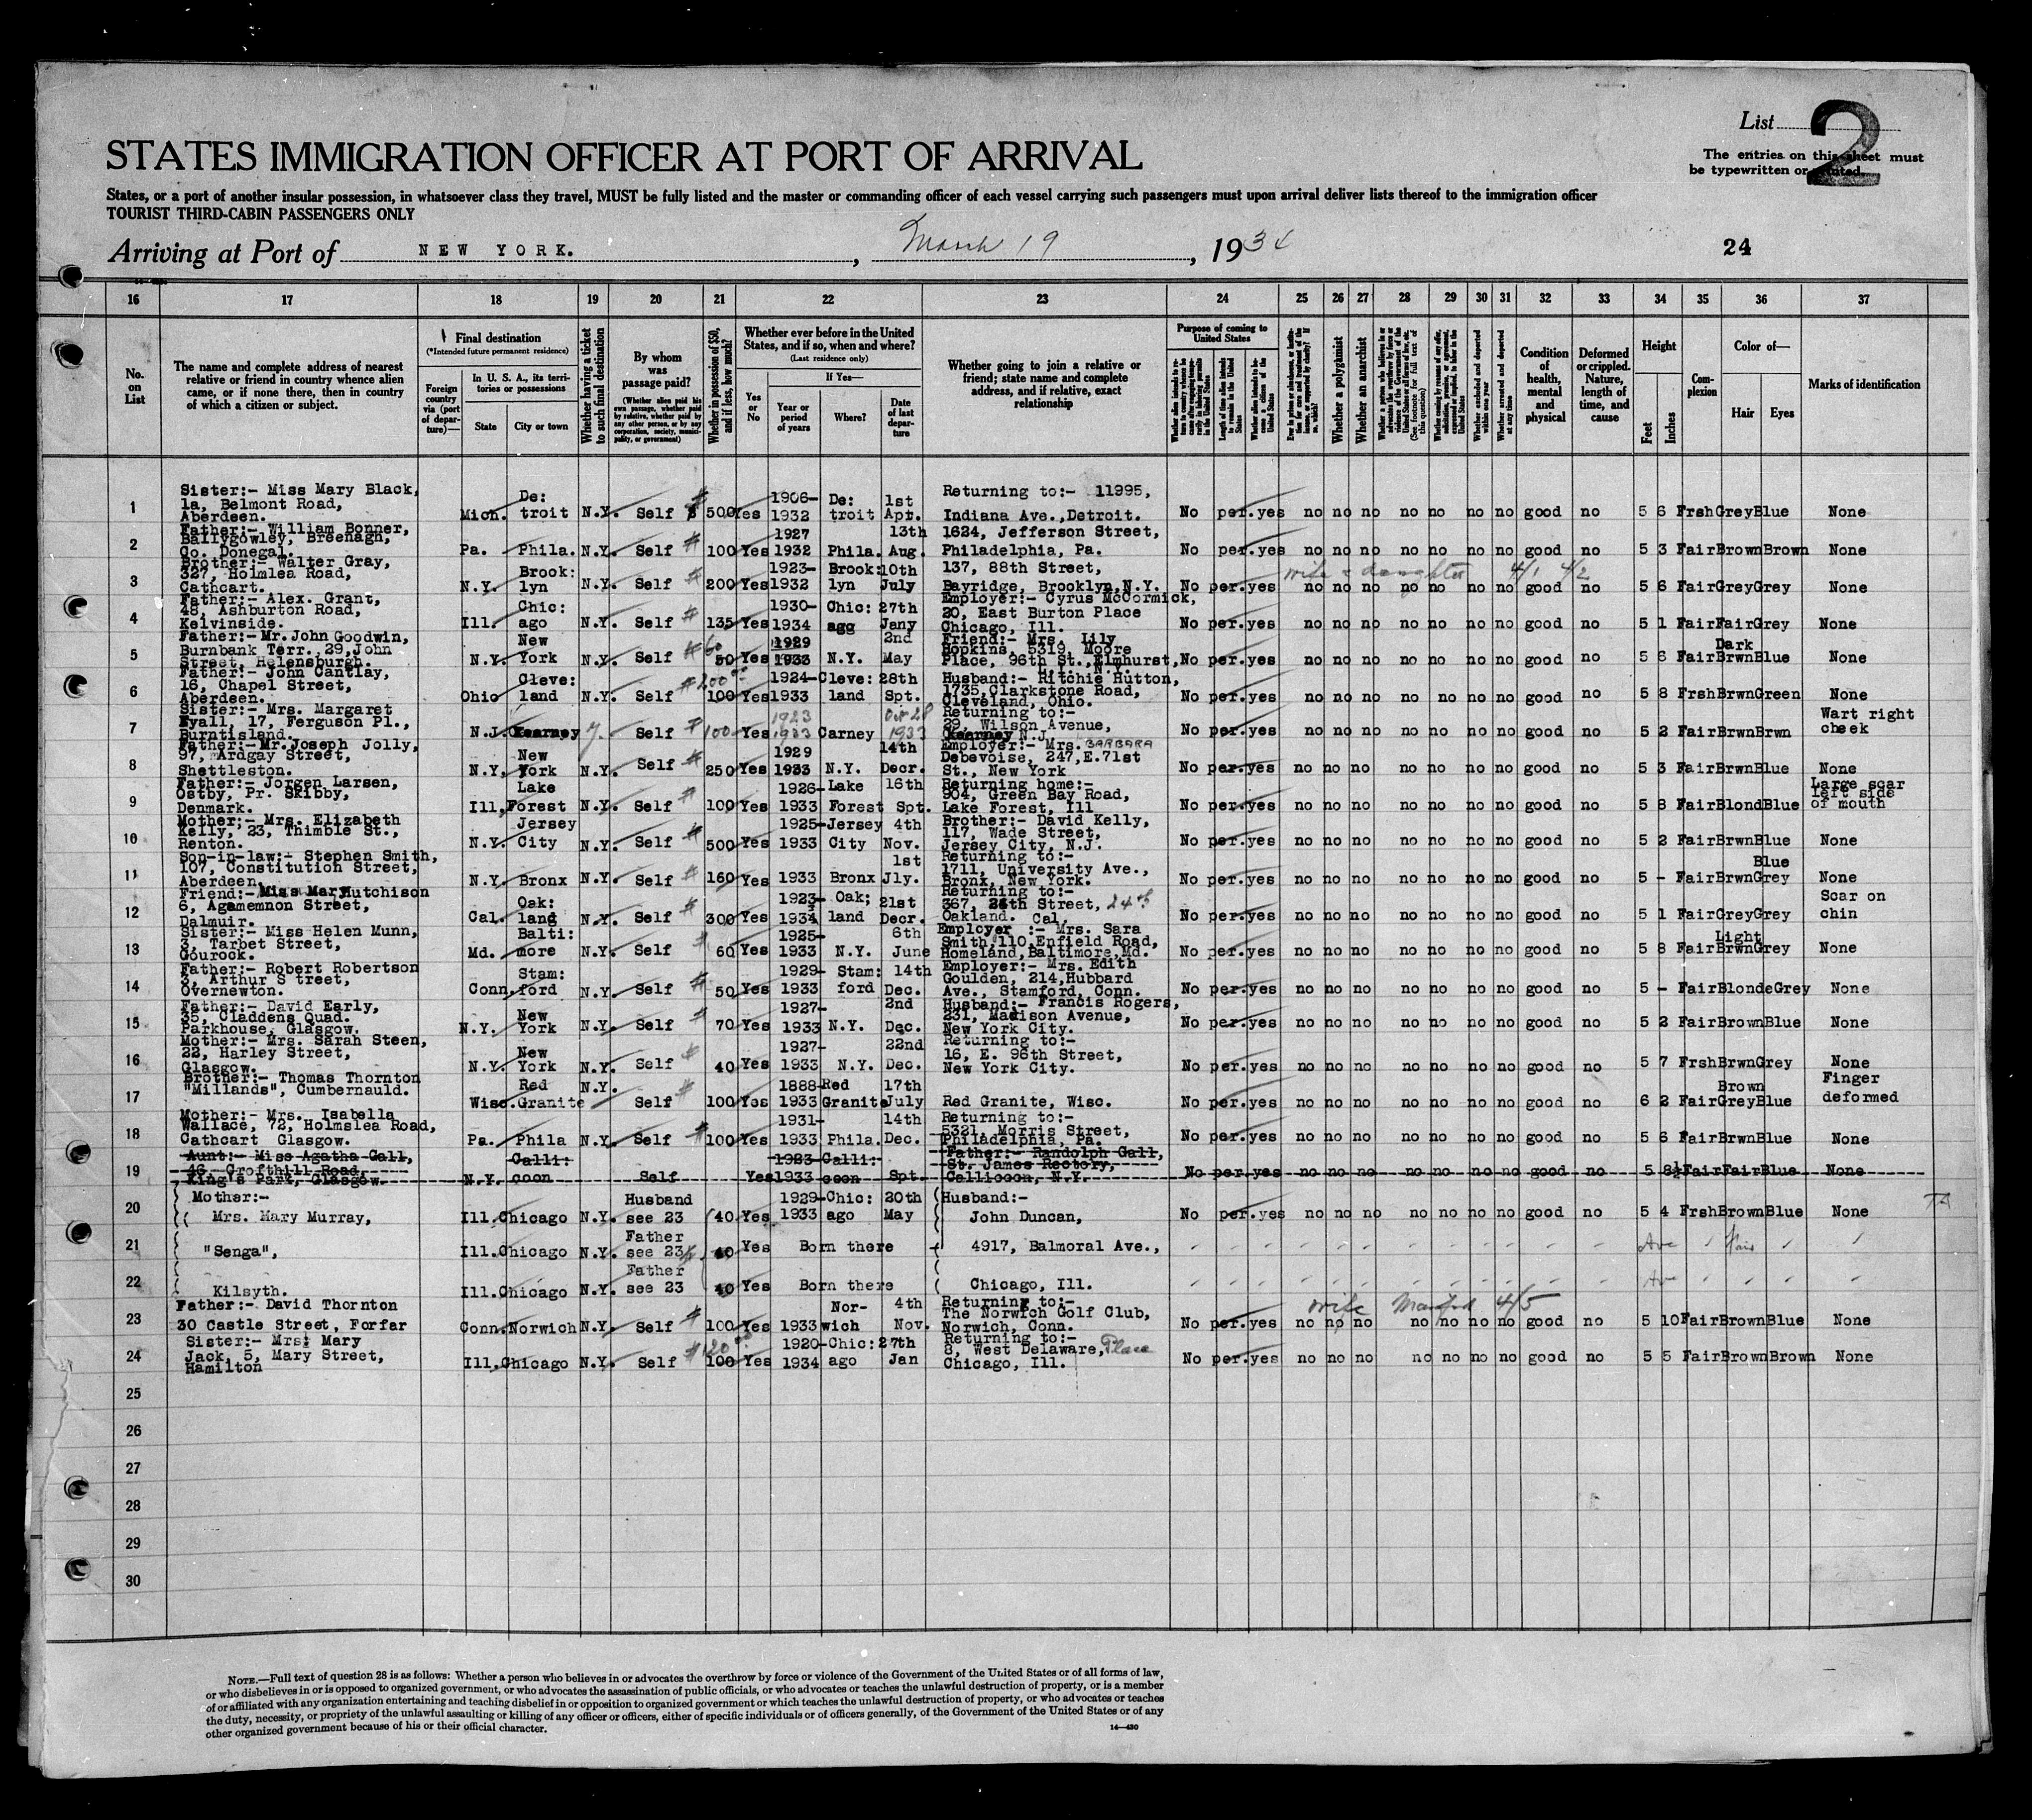 List 2
The entries on this sheet must
be typewritten or printed.
STATES IMMIGRATION OFFICER AT PORT OF ARRIVAL
States, or a port of another insular possession, in whatsoever class they travel, MUST be fully listed and the master or commanding officer of each vessel carrying such passengers must upon arrival deliver lists thereof to the immigration officer
TOURIST THIRD-CABIN PASSENGERS ONLY
Arriving at Port of NEW YORK. , March 19 , 1934 24
16 17 18 19 20 21 22 23 24 25 26 27 28 29 30 31 32 33 34 35 36 37
No. on List
The name and complete address of nearest
relative or friend in country whence alien
came, or if none there, then in country
of which a citizen or subject.
Final destination
(*Intended future permanent residence)
Foreign country via (port of departure)—
In U. S. A., its territories or possessions
State City or town
Whether having a ticket to such final destination
By whom was passage paid?
(Whether alien paid his own passage, whether paid by relative, whether paid by any other person, or by any corporation, society, municipality, or government)
Whether in possession of $50, and if less, how much?
Whether ever before in the United
States, and if so, when and where?
(Last residence only)
Yes or No
If Yes—
Year or period of years Where? Date of last departure
Whether going to join a relative or
friend; state name and complete
address, and if relative, exact
relationship
Purpose of coming to United States
Whether a polygamist
Whether an anarchist
Condition of health, mental and physical
Deformed or crippled. Nature, length of time, and cause
Height
Feet Inches
Complexion
Color of—
Hair Eyes
Marks of identification
1 Sister:- Miss Mary Black, 1a, Belmont Road, Aberdeen. Mich. De: troit N.Y. Self $ 500 Yes 1906- 1932 De: troit 1st Apr. Returning to:- 11995, Indiana Ave., Detroit. No per. yes no no no no no no no good no 5 6 Frsh Grey Blue None
2 Father:- William Bonner, Ballygowley, Breenagh, Co. Donegal. Pa. Phila. N.Y. Self 100 Yes 1927 1932 Phila. 13th Aug. 1624, Jefferson Street, Philadelphia, Pa. No per. yes no no no no no no no good no 5 3 Fair Brown Brown None
3 Brother:- Walter Gray, 327, Holmlea Road, Cathcart. N.Y. Brook: lyn N.Y. Self 200 Yes 1923- 1932 Brook: lyn 10th July 137, 88th Street, Bayridge, Brooklyn, N.Y. wife & daughter 4/1 4/2 No per. yes no no no no no no no good no 5 6 Fair Grey Grey None
4 Father:- Alex. Grant, 48, Ashburton Road, Kelvinside. Ill. Chic: ago N.Y. Self 135 Yes 1930- 1934 Chic: ago 27th Jany Employer:- Cyrus McCormick, 20, East Burton Place Chicago, Ill. No per. yes no no no no no no no good no 5 1 Fair Fair Grey None
5 Father:- Mr. John Goodwin, Burnbank Terr., 29, John Street, Helensburgh. N.Y. New York N.Y. Self 60 50 Yes 1929 1933 N.Y. 2nd May Friend:- Mrs. Lily Hopkins, 5319, Moore Place, 96th St., Elmhurst, L.I., N.Y. No per. yes no no no no no no no good no 5 6 Fair Dark Brwn Blue None
6 Father:- John Cantlay, 16, Chapel Street, Aberdeen. Ohio Cleve: land N.Y. Self 200 100 Yes 1924- 1933 Cleve: land 28th Spt. Husband:- Ritchie Hutton, 1735, Clarkstone Road, Cleveland, Ohio. No per. yes no no no no no no no good no 5 8 Frsh Brwn Green None
7 Sister:- Mrs. Margaret Fyall, 17, Ferguson Pl., Burntisland. N.J. Kearney Self 100 Yes 1923 1933 Carney 28 1933 Returning to:- 29, Wilson Avenue, Kearney N.J. No per. yes no no no no no no no good no 5 2 Fair Brwn Brwn Wart right cheek
8 Father:- Mr. Joseph Jolly, 97, Ardgay Street, Shettleston. N.Y. New York N.Y. Self 250 Yes 1929 1933 N.Y. 14th Decr. Employer:- Mrs. BARBARA Debevoise, 247, E.71st St., New York No per. yes no no no no no no no good no 5 3 Fair Brwn Blue None
9 Father:- Jorgen Larsen, Ostby, Pr. Skibby, Denmark. Ill, Lake Forest N.Y. Self 100 Yes 1926- 1933 Lake Forest 16th Spt. Returning home:- 904, Green Bay Road, Lake Forest, Ill No per. yes no no no no no no no good no 5 8 Fair Blond Blue Large scar left side of mouth
10 Mother:- Mrs. Elizabeth Kelly, 23, Thimble St., Renton. N.Y. Jersey City N.Y. Self 500 Yes 1925- 1933 Jersey City 4th Nov. Brother:- David Kelly, 117, Wade Street, Jersey City, N.J. No per. yes no no no no no no no good no 5 2 Fair Brwn Blue None
11 Son-in-law:- Stephen Smith, 107, Constitution Street, Aberdeen. N.Y. Bronx N.Y. Self 160 Yes 1933 Bronx 1st Jly. Returning to:- 1711, University Ave., Bronx, New York. No per. yes no no no no no no no good no 5 - Fair Brwn Blue Grey None
12 Friend:- Miss Mary Hutchison 6, Agamemnon Street, Dalmuir. Cal. Oak: land N.Y. Self 300 Yes 1923- 1934 Oak; land 21st Decr. Returning to:- 367, 26th Street, 24th Oakland. Cal. No per. yes no no no no no no no good no 5 1 Fair Grey Grey Scar on chin
13 Sister:- Miss Helen Munn, 3, Tarbet Street, Gourock. Md. Balti: more N.Y. Self 60 Yes 1925- 1933 N.Y. 6th June Employer :- Mrs. Sara Smith, 110, Enfield Road, Homeland, Baltimore, Md. No per. yes no no no no no no no good no 5 8 Fair Light Brwn Grey None
14 Father:- Robert Robertson 3, Arthur S treet, Overnewton. Conn. Stam: ford N.Y. Self 50 Yes 1929- 1933 Stam: ford 14th Dec. Employer:- Mrs. Edith Goulden, 214, Hubbard Ave., Stamford, Conn. No per. yes no no no no no no no good no 5 - Fair Blonde Grey None
15 Father:- David Early, 35, Claddens Quad. Parkhouse, Glasgow. N.Y. New York N.Y. Self 70 Yes 1927- 1933 N.Y. 2nd Dec. Husband:- Francis Rogers, 231, Madison Avenue, New York City. No per. yes no no no no no no no good no 5 2 Fair Brown Blue None
16 Mother:- Mrs. Sarah Steen, 22, Harley Street, Glasgow. N.Y. New York N.Y. Self 40 Yes 1927- 1933 N.Y. 22nd Dec. Returning to:- 16, E. 96th Street, New York City. No per. yes no no no no no no no good no 5 7 Frsh Brwn Grey None
17 Brother:- Thomas Thornton "Millands", Cumbernauld. Wisc. Red Granite N.Y. Self 100 Yes 1888- 1933 Red Granite 17th July Red Granite, Wisc. No per. yes no no no no no no no good no 6 2 Fair Brown Grey Blue Finger deformed
18 Mother:- Mrs. Isabella Wallace, 72, Holmslea Road, Cathcart Glasgow. Pa. Phila N.Y. Self 100 Yes 1931- 1933 Phila. 14th Dec. Returning to:- 5321, Morris Street, Philadelphia, Pa. No per. yes no no no no no no no good no 5 6 Fair Brwn Blue None
19 Aunt:- Miss Agatha Gall, 46, Crofthill Road, King's Park, Glasgow. N.Y. Calli: coon Self Yes 1923- 1933 Calli: coon Spt. Father:- Randolph Gall, St. James Rectory, Callicoon, N.Y. No per. yes no no no no no no no good no 5 8½ Fair Fair Blue None
20 Mother:- Mrs. Mary Murray, Ill. Chicago N.Y. Husband see 23 40 Yes 1929- 1933 Chic: ago 20th May Husband:- John Duncan, No per. yes no no no no no no no good no 5 4 Frsh Brown Blue None
21 "Senga", Ill. Chicago N.Y. Father see 23 40 Yes Born there 4917, Balmoral Ave., Ave Fair
22 Kilsyth. Ill. Chicago N.Y. Father see 23 40 Yes Born there Chicago, Ill. Ave
23 Father:- David Thornton 30 Castle Street, Forfar Conn. Norwich N.Y. Self 100 Yes 1933 Nor- wich 4th Nov. Returning to:- The Norwich Golf Club, Norwich, Conn. wife 4/5 No per. yes no no no no no no no good no 5 10 Fair Brown Blue None
24 Sister:- Mrs: Mary Jack, 5, Mary Street, Hamilton Ill. Chicago N.Y. Self 120 100 Yes 1920- 1934 Chic: ago 27th Jan Returning to:- 8, West Delaware, Place Chicago, Ill. No per. yes no no no no no no no good no 5 5 Fair Brown Brown None
25
26
27
28
29
30
NOTE.—Full text of question 28 is as follows: Whether a person who believes in or advocates the overthrow by force or violence of the Government of the United States or of all forms of law,
or who disbelieves in or is opposed to organized government, or who advocates the assassination of public officials, or who advocates or teaches the unlawful destruction of property, or is a member
of or affiliated with any organization entertaining and teaching disbelief in or opposition to organized government or which teaches the unlawful destruction of property, or who advocates or teaches
the duty, necessity, or propriety of the unlawful assaulting or killing of any officer or officers, either of specific individuals or of officers generally, of the Government of the United States or of any
other organized government because of his or their official character.
14—430